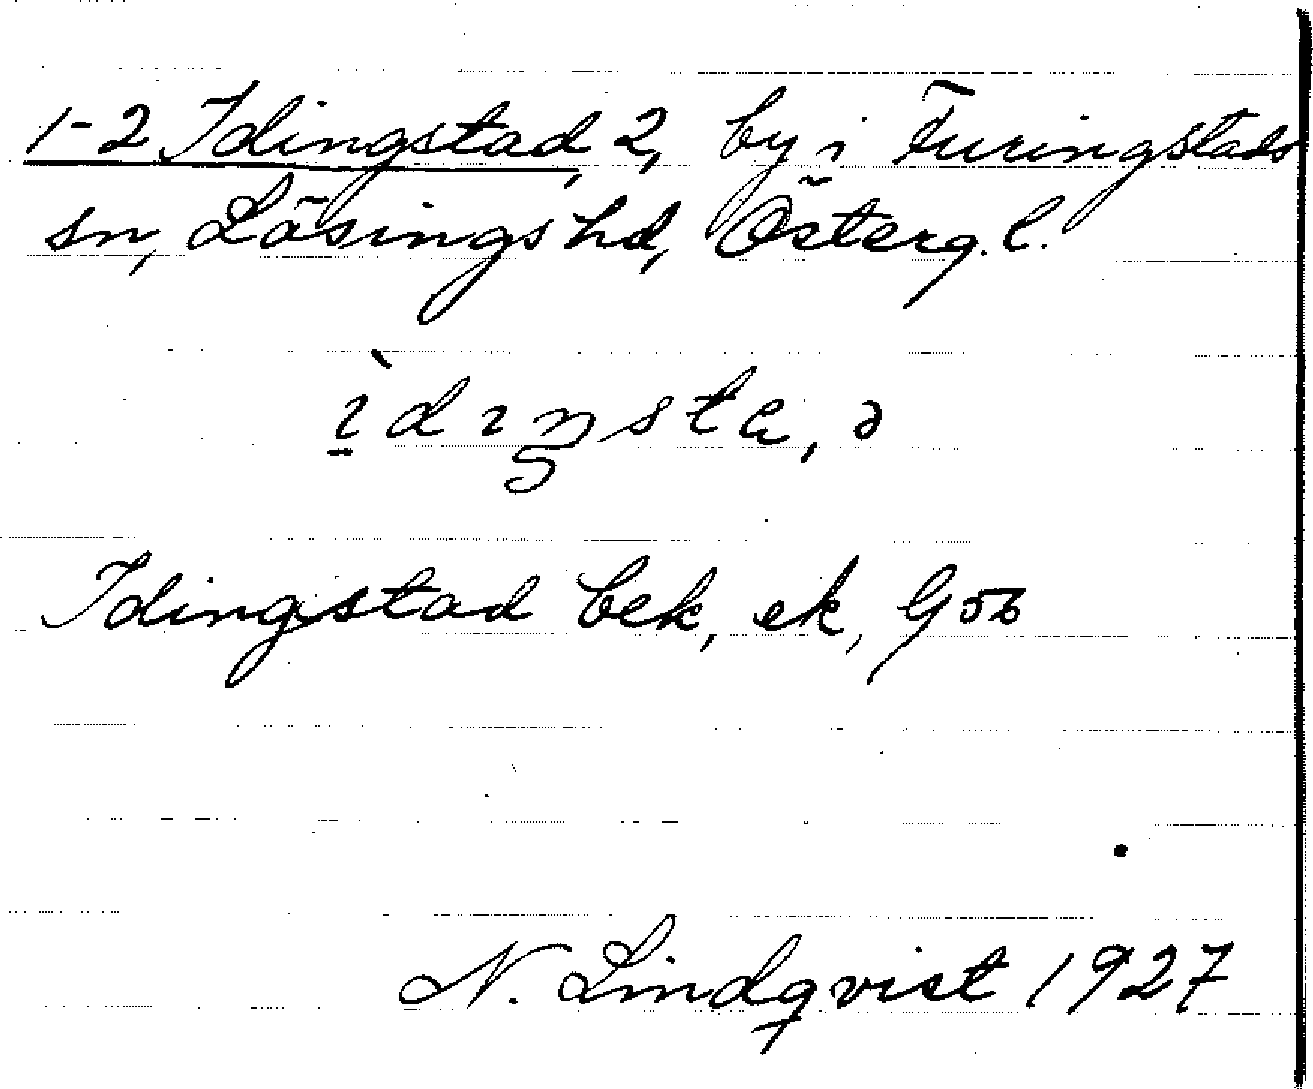 1-2 Idingstad, 2, by i Furingstads
sn, Lösings hd, Österg. l.
ìdıŋsta, ə
Idingstad bek, ek, G56
N. Lindqvist 1927